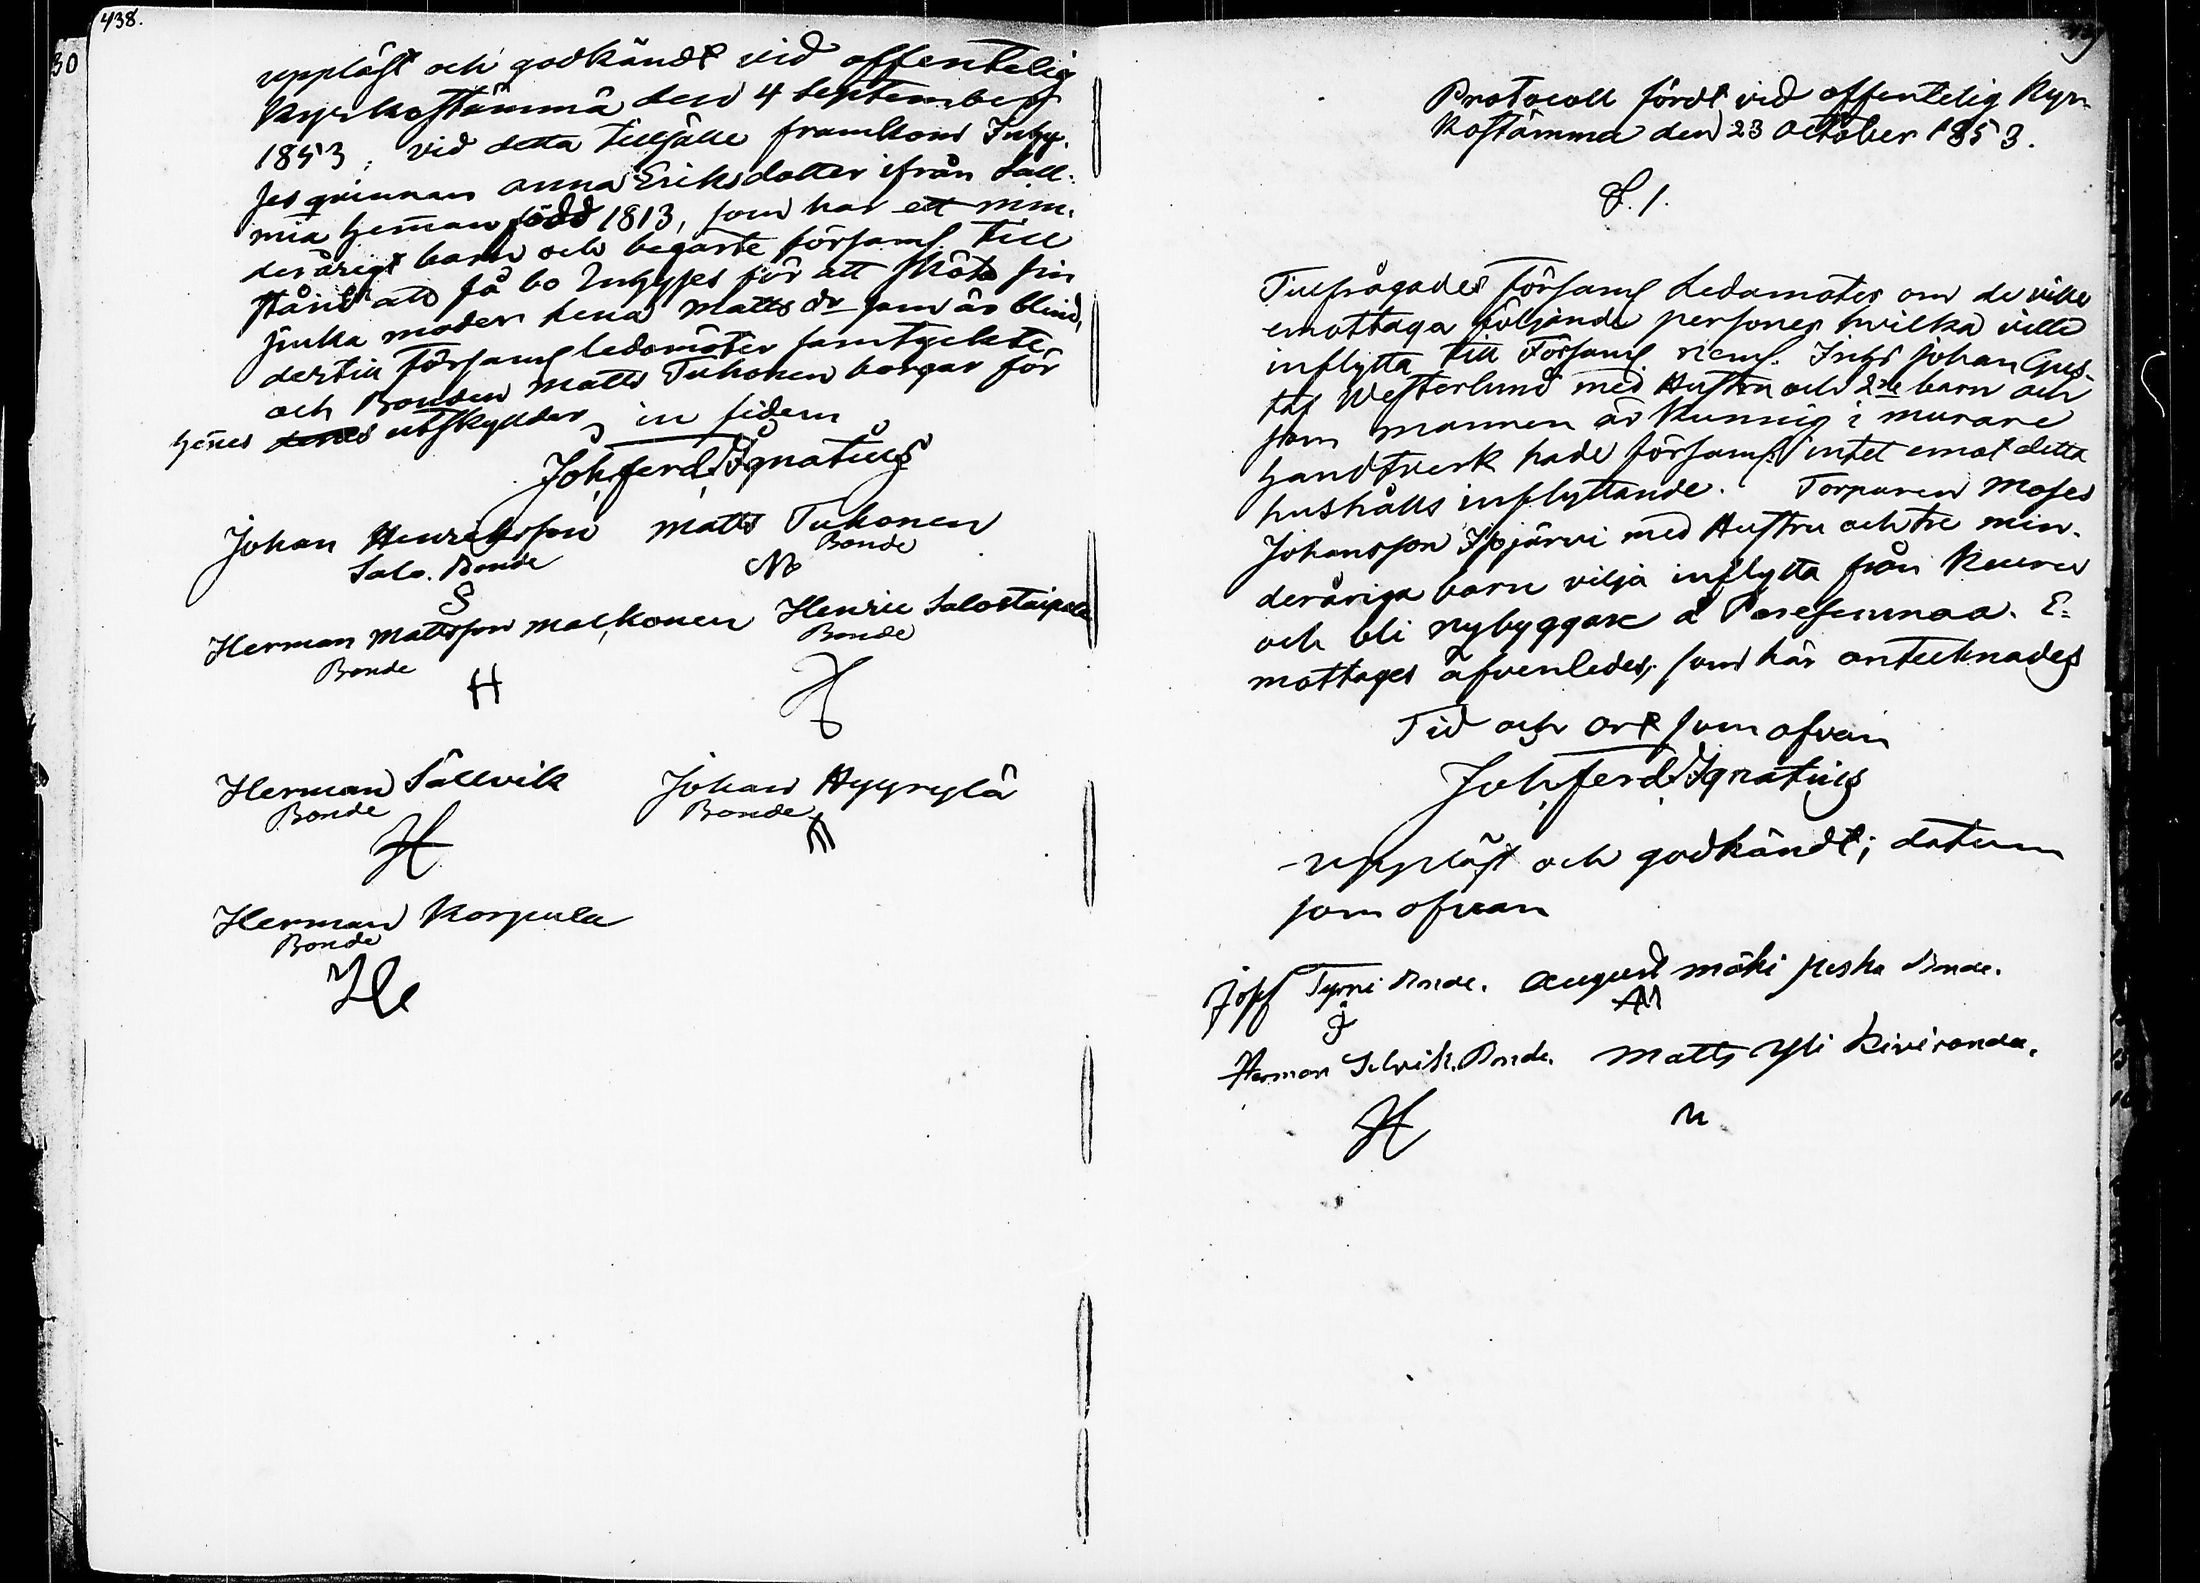 438.
30
uppläst och godkändt vid offentelig
Kyrkostämma den 4 September
1853; vid detta tillfälle framkom Inhy-
ses qvinnan Anna Eriksdotter ifrån Säll-
mia heman född 1813, som har ett min-
derårigt barn och begärte församl. till
stånd att få bo Inhyses för att sköta sin
sjuka moder Lena Matts dr som är blind,
dertill Församl ledamöter samtyckte
och Bonden Matts Tuhonen borgar för
henes utskylder, in fidem
Joh, ferd, Ignatius
Johan Henriksson Matts Tuhonen
Salo. Bonde Bonde
S M
Herman Mattsson Malkonen Henric Salostaipale
Bonde Bonde
H H
Herman Sällvik Johan Hyyrylä
Bonde Bonde
H
Herman Korpula
Bonde
H
Protocoll fördt vid offentelig Kyr-
kostämma den 23 October 1853.
§. 1.
Tillfrågades Församl Ledamöter om de ville
emottaga följande personer hvilka ville
inflytta till Församl neml. Inhs Johan Gus-
taf Westerlund med Hustru och 2ne barn och
som mannen är kunnig i murare
handtverk hade församl. intet emot detta
hushålls inflyttande. Torparen Moses
Johansson Ispjärvi med Hustru och tre min-
deråriga barn vilja inflytta från Keuru
och bli nybyggare å E-
mottages äfvenledes, som här antecknades
Tid och ort som ofvan
Joh, ferd, Ignatius
uppläst och godkändt; datum
som ofvan
Josef Tyrni Bonde. August Mäki Bonde.
J AM
Herman Selvik. Bonde. Matts Yli Kiviranda.
H M